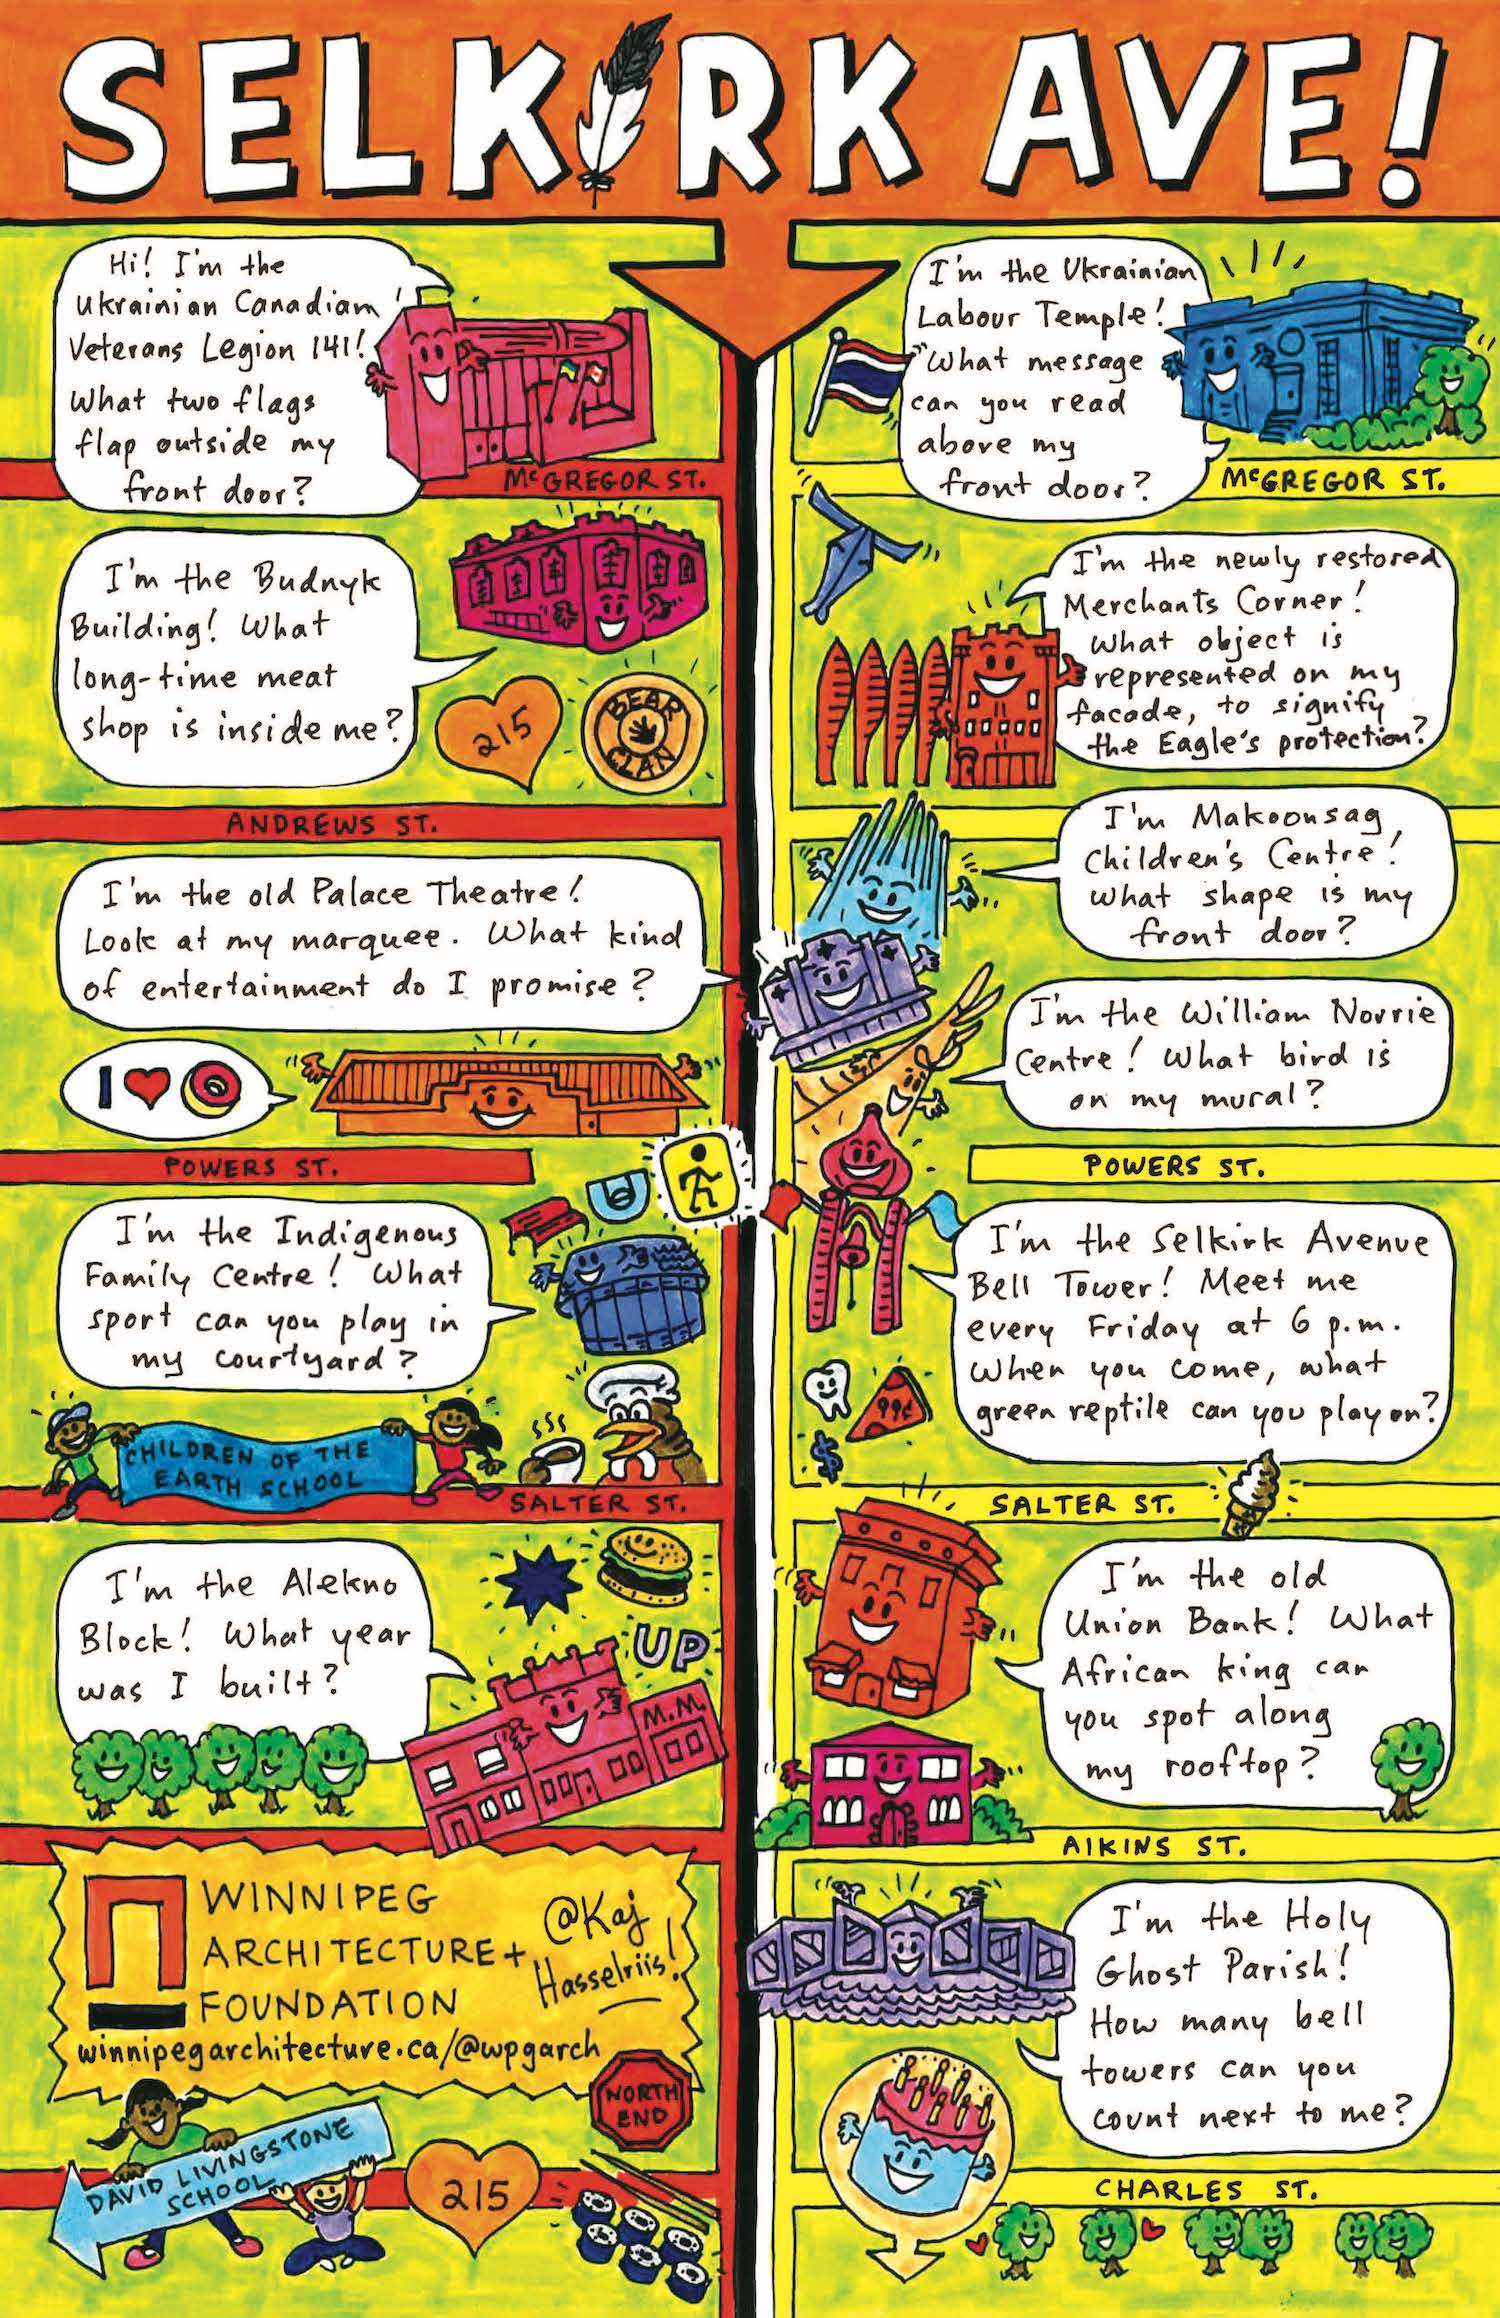 SELKIRK AVE!
Hi! I'm the
Ukrainian Canadian
Veterans Legion 141!
What two flags
flap outside my
front door?
McGREGOR ST.
I'm the Ukrainian
Labour Temple!
What message
can you read
above my
front door?
McGREGOR ST.
I'm the Budnyk
Building! What
long-time meat
shop is inside me?
215
BEAR
CLAN
ANDREWS ST.
I'm the newly restored
Merchants Corner!
What object is
represented on my
facade, to signify
the Eagle's protection?
I'm the old Palace Theatre!
Look at my marquee. What kind
of entertainment do I promise?
I
POWERS ST.
I'm Makoonsag
Children's Centre!
What shape is my
front door?
I'm the William Norrie
Centre! What bird is
on my mural?
POWERS ST.
I'm the Indigenous
Family Centre! What
sport can you play in
my courtyard?
CHILDREN OF THE
EARTH SCHOOL
SALTER ST.
I'm the Selkirk Avenue
Bell Tower! Meet me
every Friday at 6 p.m.
When you come, what
green reptile can you play on?
99¢
$
SALTER ST.
I'm the Alekno
Block! What year
was I built?
UP
M.M.
I'm the old
Union Bank! What
African king can
you spot along
my rooftop?
AIKINS ST.
WINNIPEG
ARCHITECTURE +
FOUNDATION
@Kaj
Hasselriis!
winnipegarchitecture.ca/@wpgarch
NORTH
END
DAVID LIVINGSTONE
SCHOOL
215
I'm the Holy
Ghost Parish!
How many bell
towers can you
count next to me?
CHARLES ST.